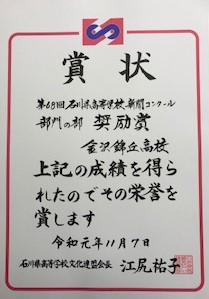 賞状
第68回石川県高等学校新聞コンクール
部門の部 奨励賞
金沢錦丘高校
上記の成績を得ら
れたのでその栄誉を
賞します
令和元年11月7日
石川県高等学校文化連盟会長 江尻祐子